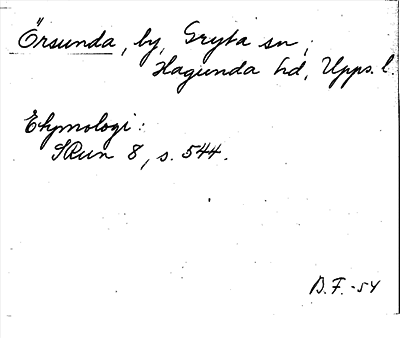 Örsunda, by, Gryta sn,
Hagunda hd, Upps. l.
Etymologi:
SRun 8, s. 544.
B.F. -54